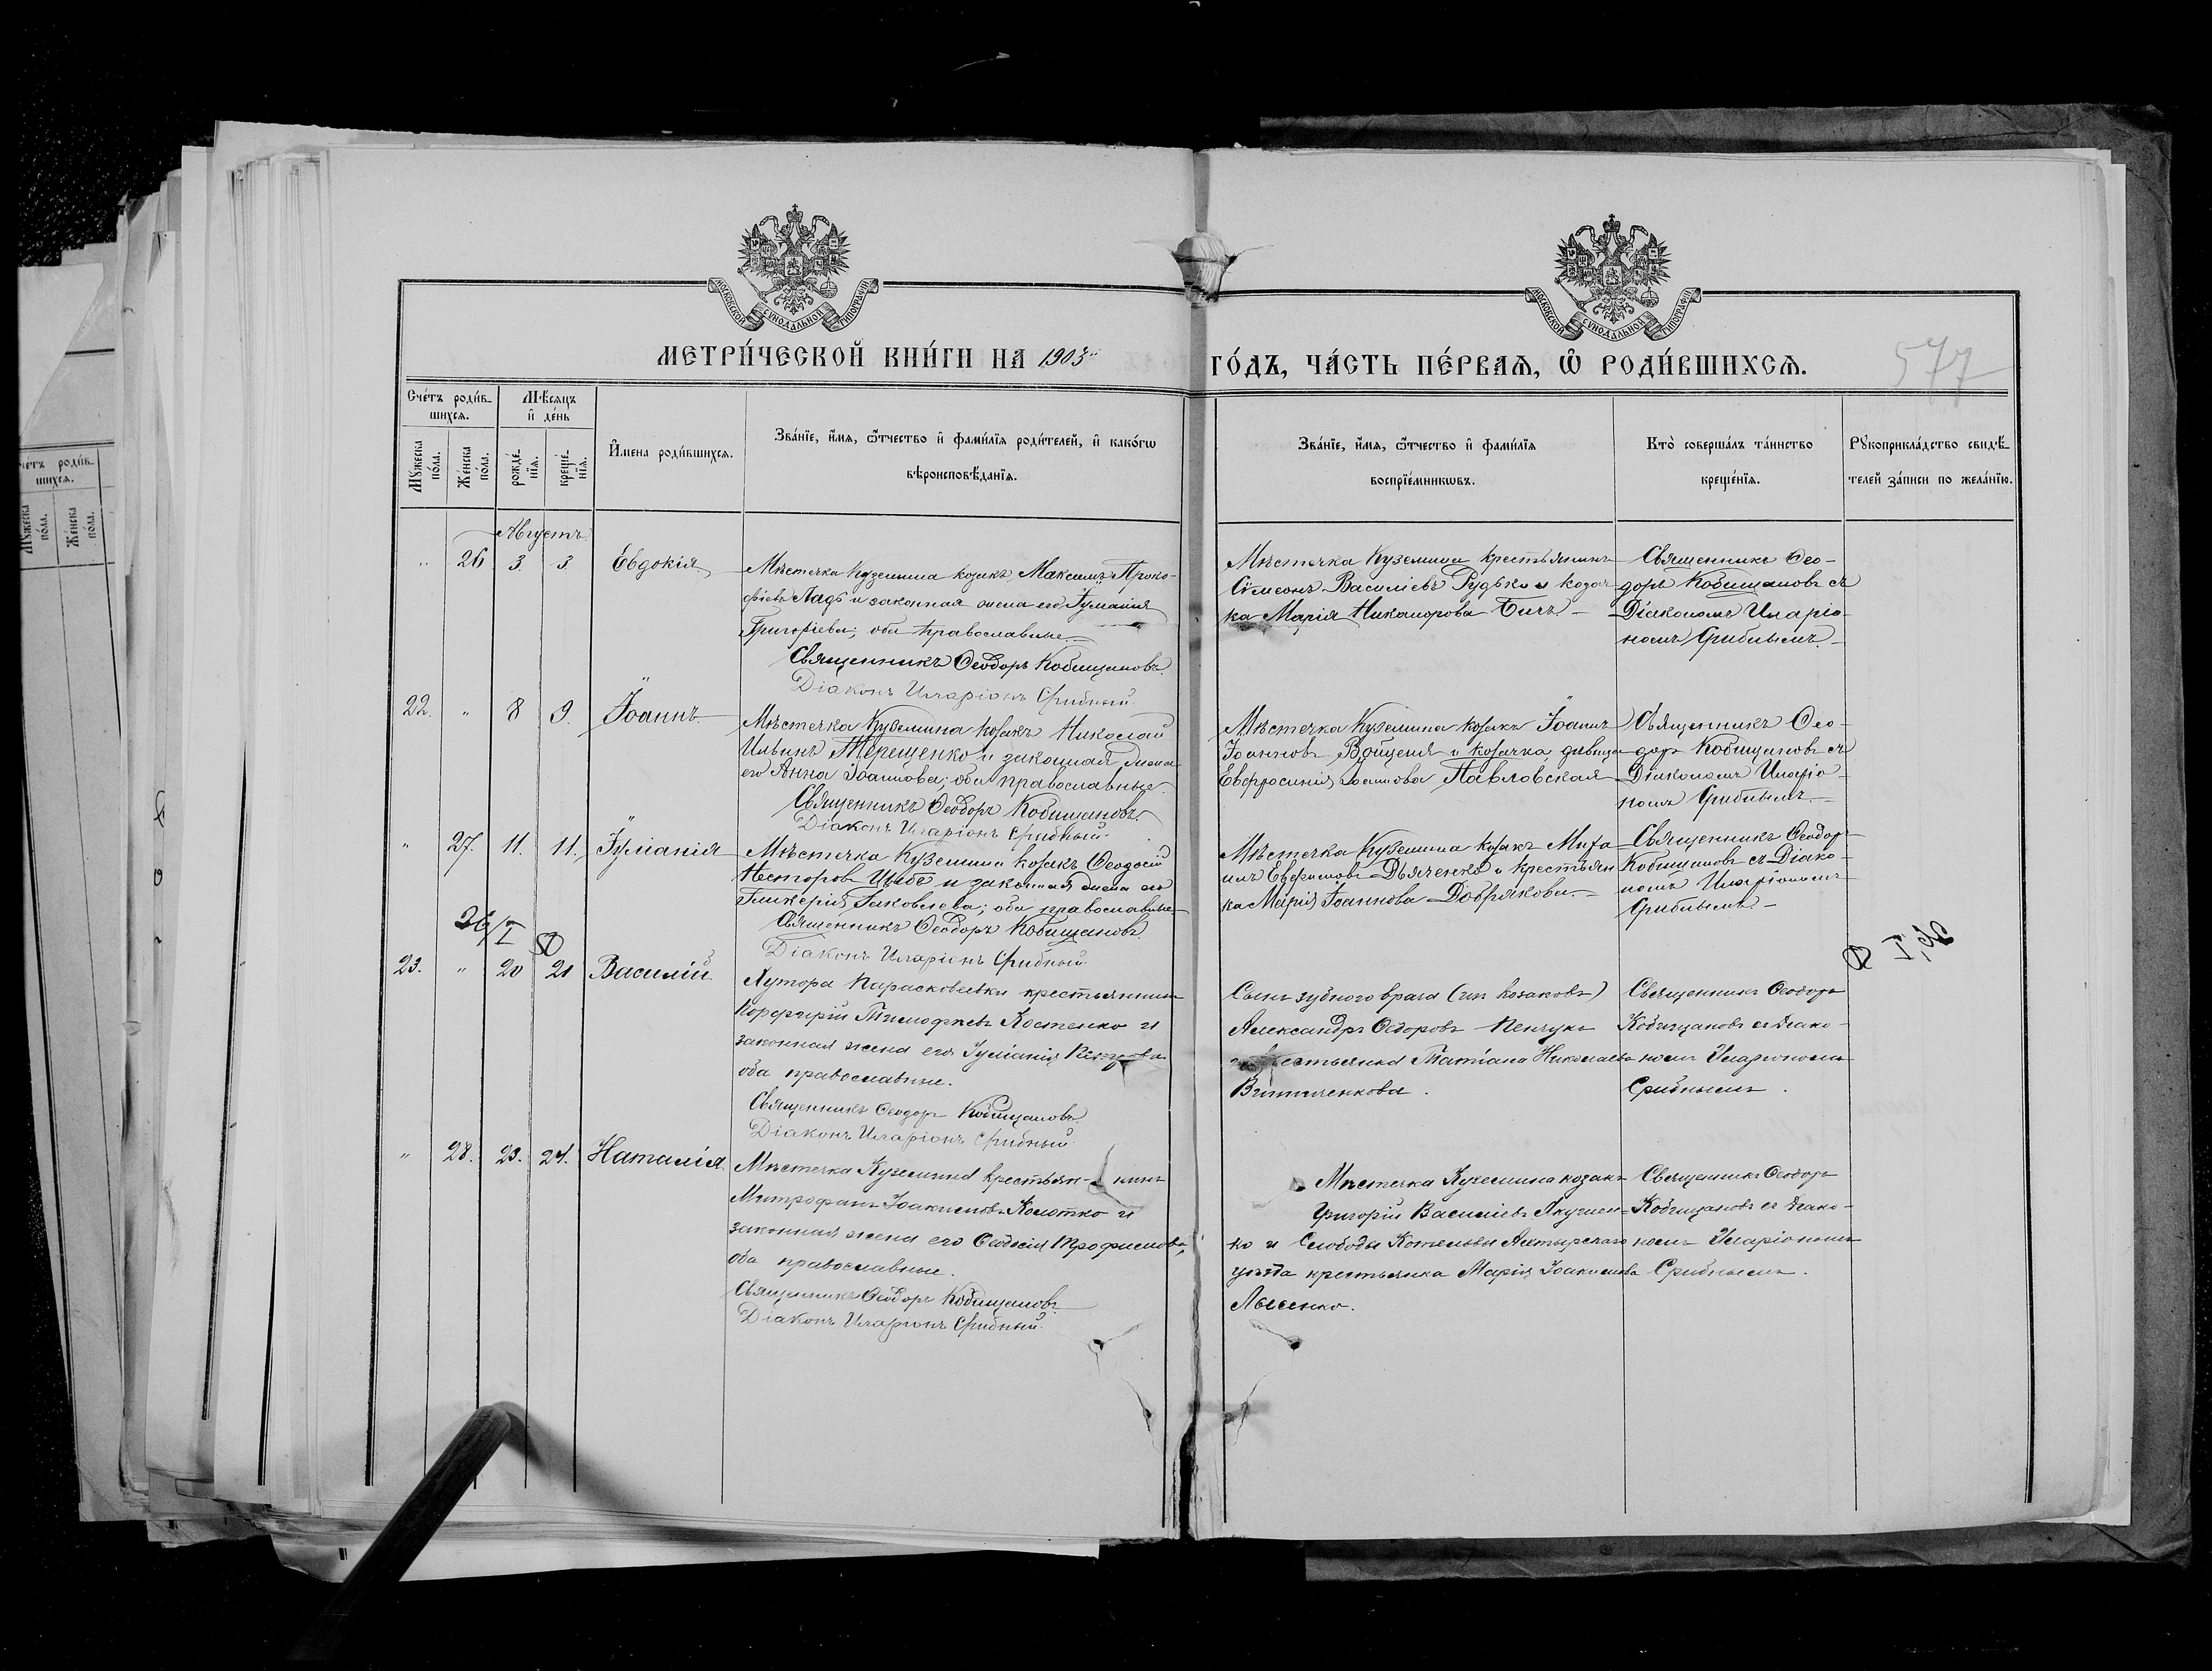 МОСКОВСКОЙ СУНОДАЛЬНОЙ ТИПОГРАФІИ
МОСКОВСКОЙ СУНОДАЛЬНОЙ ТИПОГРАФІИ
МЕТРИ́ЧЕСКОЙ КНИ́ГИ НА 1903й
ГО́ДЪ, ЧА́СТЬ ПЕ́РВАѦ, Ѡ҆ РОДИ́ВШИХСѦ.
577
Сче́тъ роди́в-
шихсѧ.
Мꙋ́жеска по́ла.
Же́нска по́ла.
Мѣ́сѧцъ
и҆ де́нь
рожде́-нїѧ.
креще́-нїѧ.
И҆́мена роди́вшихсѧ.
Зва́нїе, и҆́мѧ, ѻ҆́тчество и҆ фами́лїѧ роди́телей, и҆ како́гѡ
вѣроисповѣ́данїѧ.
Зва́нїе, и҆́мѧ, ѻ҆́тчество и҆ фами́лїѧ
воспрїе́мникѡвъ.
Кто̀ соверша́лъ та́инство
креще́нїѧ.
Рꙋкоприкла́дство свидѣ́-
телей за́писи по жела́нїю.
Августъ
" 26 3. 3 Евдокія
Мѣстечка Куземина козакъ Максимъ Проко-
фіевъ Ладъ и законная жена его Іуліанія
Григоріева; оба православные.
Священникъ Ѳеодоръ Кобищановъ.
Діаконъ Иларіонъ Срибный.
Мѣстечка Куземина крестьянинъ
Сѵмеонъ Василіевъ Рудько и козач-
ка Марія Никанорова Бичъ
Священникъ Ѳео-
доръ Кобищановъ съ
Діакономъ Иларіо-
номъ Срибнымъ.
22. " 8 9. Іоаннъ.
Мѣстечка Куземина козакъ Николай
Ильинъ Терещенко и законная жена
его Анна Іоаннова; оба православные.
Священникъ Ѳеодоръ Кобищановъ.
Діаконъ Иларіонъ Срибный.
Мѣстечка Куземина козакъ Іоаннъ
Іоанновъ Войценя и козачка девица
Евфросинія Іоаннова Павловская
Священникъ Ѳео-
доръ Кобищановъ съ
Діакономъ Иларіо-
номъ Срибнымъ.
" 27. 11. 11. Іуліанія
Мѣстечка Куземина козакъ Ѳеодосій
Несторовъ Цыбе и законная жена его
Гликерія Іаковлева; оба православные
Священникъ Ѳеодоръ Кобищановъ.
Діаконъ Иларіонъ Срибный.
Мѣстечка Куземина козакъ Миха-
илъ Евфимовъ Дьяченко и крестьян
ка Марія Іоаннова Добрякова.
Священникъ Ѳеодоръ
Кобищановъ съ Діако-
номъ Иларіономъ
Срибнымъ
26/I
23. " 20 21 Василій
Хутора Парасковеевки крестьянинъ
Порфирій Тимофеевъ Костенко и
законная жена его Іуліанія Петрова
оба православные.
Священникъ Ѳеодоръ Кобищановъ.
Діаконъ Иларіонъ Срибный.
Сынъ зубного врача (изъ козаковъ)
Александръ Ѳедоровъ Пенчукъ
Татіана Николаева
Витиченкова.
Священникъ Ѳеодоръ
Кобищановъ съ діако-
номъ Иларіономъ
Срибнымъ.
" 28. 23. 24. Наталія
Мѣстечка Куземина крестьян-нинъ
Митрофанъ Іоакимовъ Колотко и
законная жена его Ѳеодосія Трофимова,
оба православные.
Священникъ Ѳеодоръ Кобищановъ.
Діаконъ Иларіонъ Срибный.
Мѣстечка Куземина козакъ
Григорій Василіевъ Якимен-
ко и Слободы Котельвы Ахтырскаго
уѣзда крестьянка Марія Іоакимова
Лысенко.
Священникъ Ѳеодоръ
Кобищановъ съ діако-
номъ Иларіономъ
Срибнымъ.